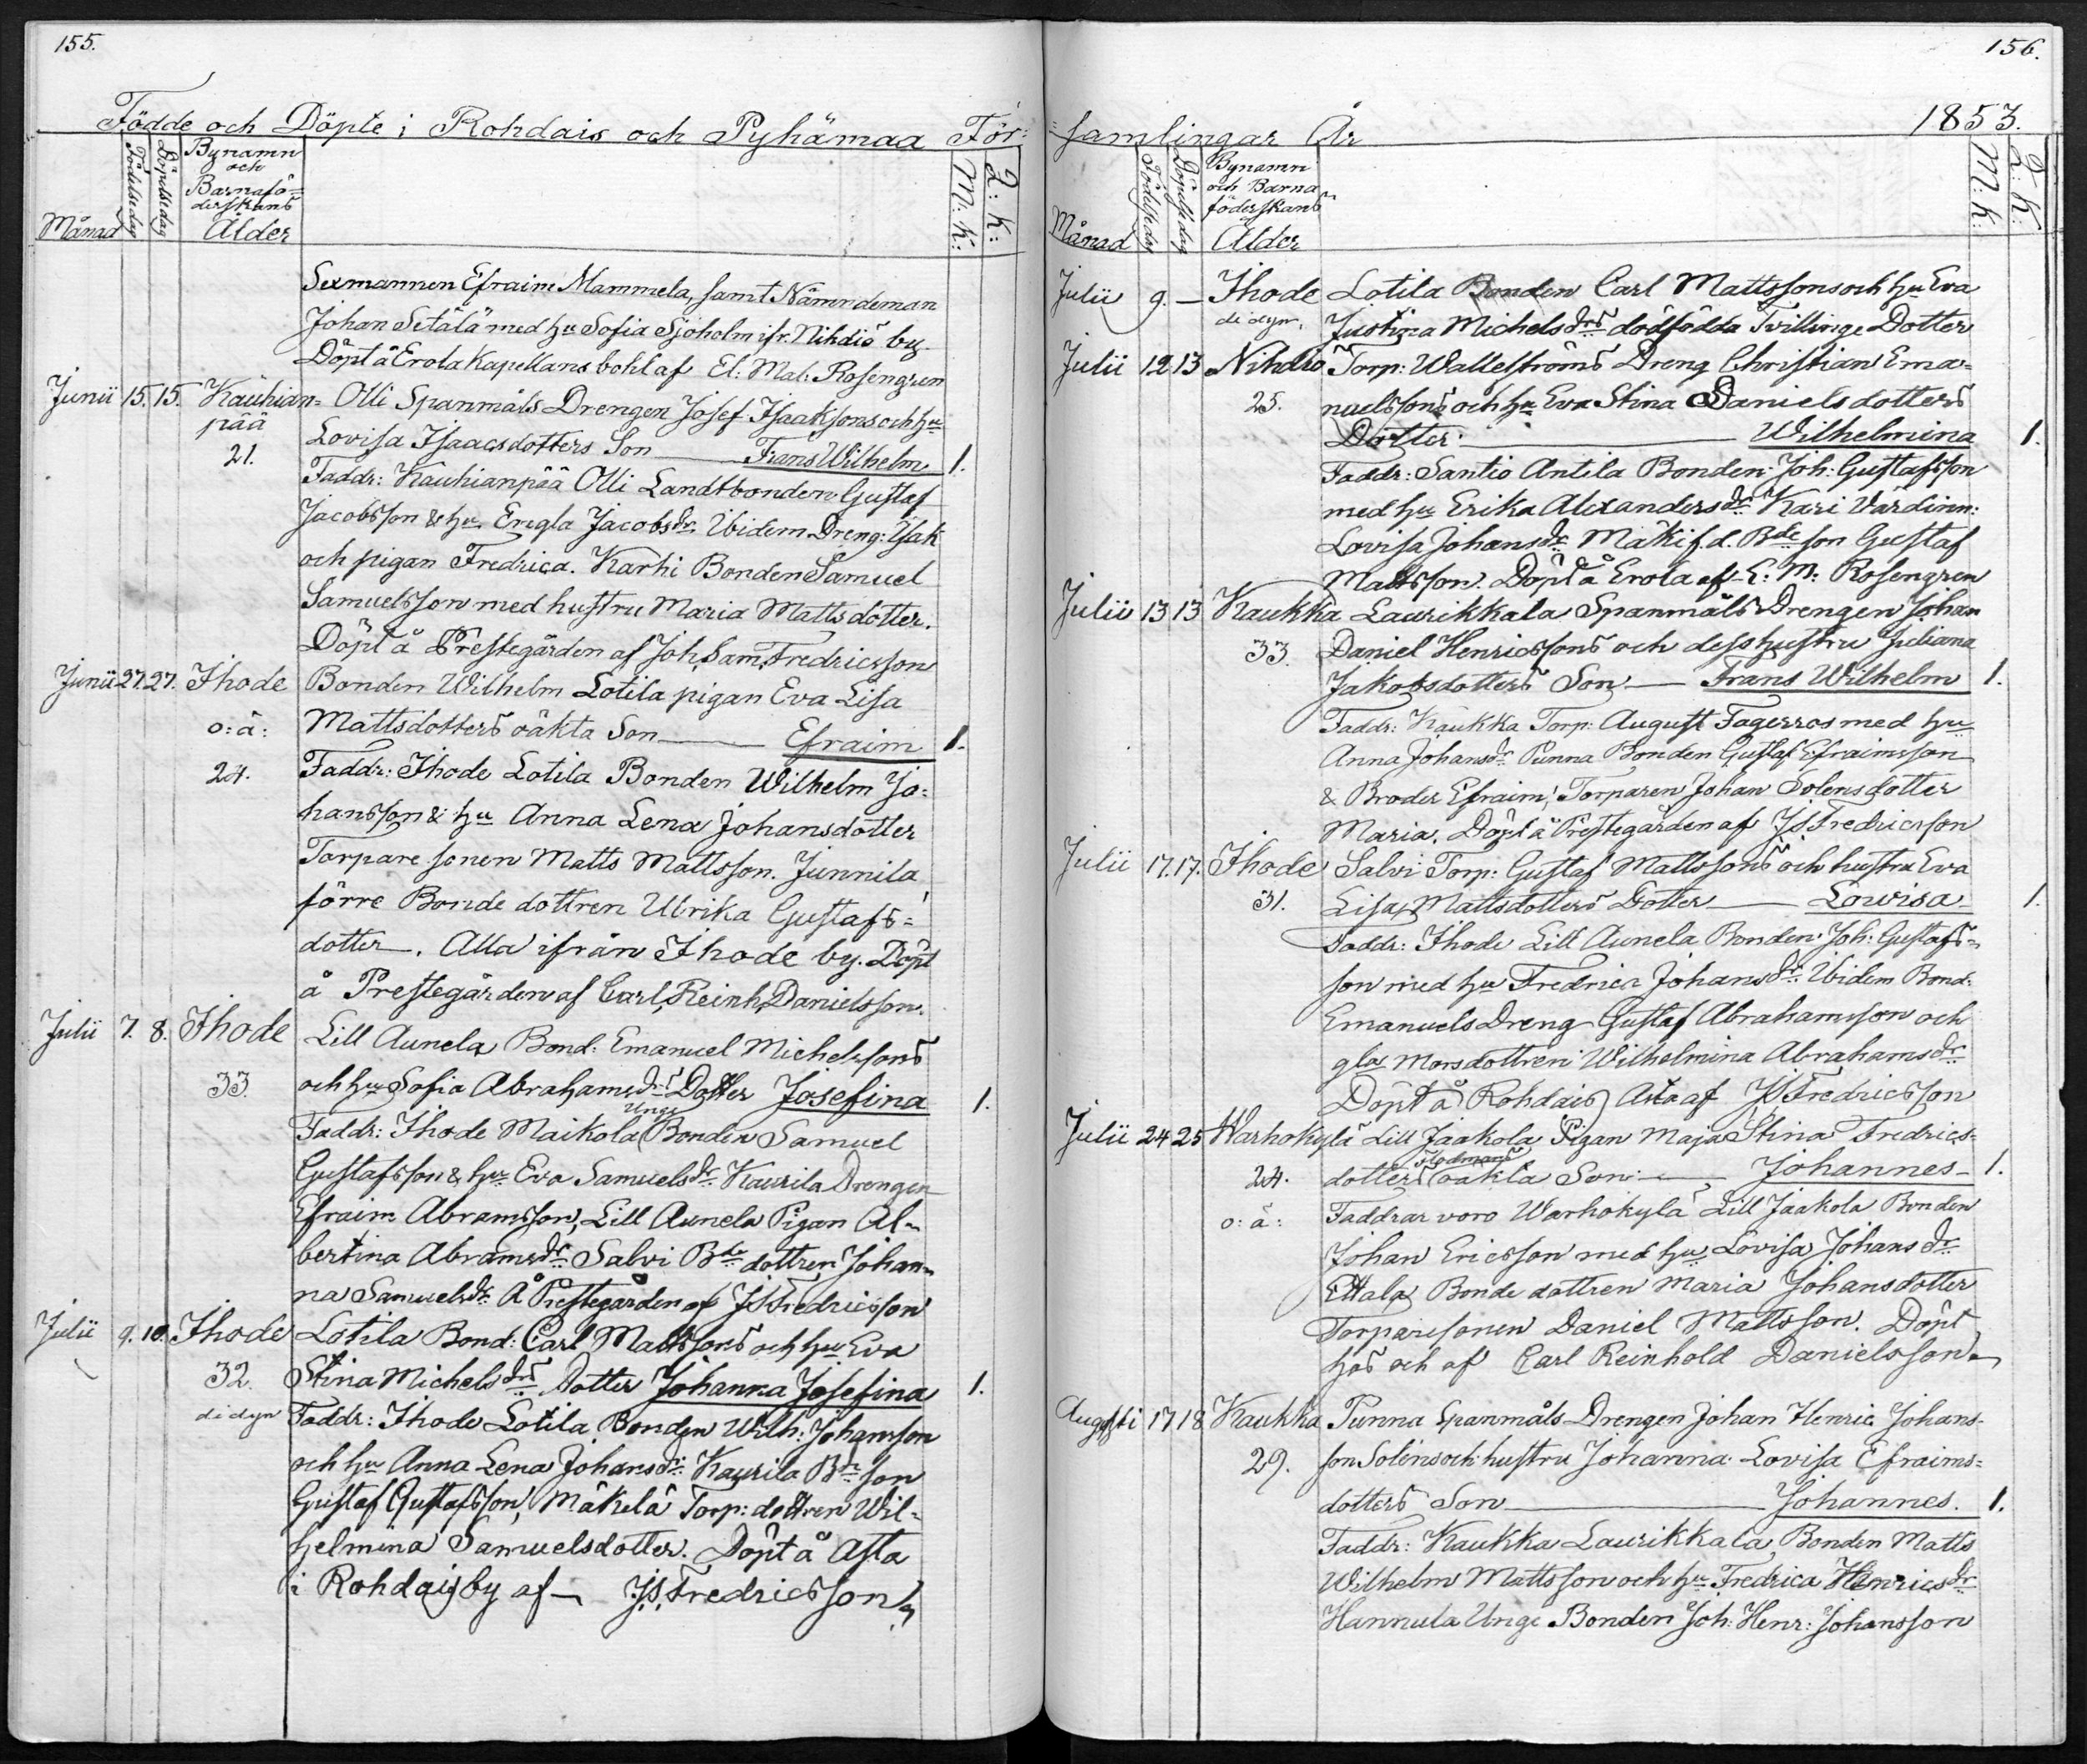 155.
Födde och Döpte i Rohdais och Pyhämaa För=
Månad
Födelsedag
Döpelsedag
Bynamn
och
Barnafö=
derskans
Ålder
M: K:
Q: K:
Sexmannen Efraim Mammela, samt Nämndeman
Johan Setälä med hu Sofia Sjöholm ifr. Nihdiö by
Döpt å Erola Kapellans bohl af El: Mat: Rosengren
Junii 15. 15. Kauhian= Olli Spanmåls Drengen Josef Isaakssons och hu
pää Lovisa Isaacsdotters Son Frans Wilhelm 1.
21. Faddr: Kauhianpää Olli Landtbonden Gustaf
Jacobsson & hu Engla Jacobsdr Ibidem Dreng: Isak
och pigan Fredrica. Karhi Bonden Samuel
Samuelsson med hustru Maria Mattsdotter.
Döpt å Prestegården af Joh. Sam. Fredricsson
Junii 27. 27. Ihode Bonden Wilhelm Lotila pigan Eva Lisa
o: ä: Mattsdotters oäkta Son Efraim 1.
24. Faddr: Ihode Lotila Bonden Wilhelm Jo=
hansson & hu Anna Lena Johansdotter
Torpare sonen Matts Mattsson. Junnila
förre Bonde dottren Ulrika Gustafs=
dotter. Alla ifrån Ihode by. Döpt
å Prestegården af Carl Reinh. Danielsson.
Julii 7. 8. Ihode Lill Aunela Bond: Emanuel Michelssons
33. och hu Sofia Abrahamsdrs Dotter Josefina 1.
Unge
Faddr: Ihode Maikola Bonden Samuel
Gustafsson & hu Eva Samuelsdr Kaurila Drengen
Efraim Abramsson, Lill Aunela Pigan Al=
bertina Abramsdr Salvi Bde dottren Johan=
na Samuelsdr Å Prestegården af J S Fredricsson
Julii 9. 10. Ihode Lotila Bond: Carl Mattssons och hu Eva
32. Stina Michelsdrs Dotter Johanna Josefina 1.
didyn Faddr: Ihode Lotila Bonden Wilh: Johansson
och hu Anna Lena Johansdr Kaurila Bde son
Gustaf Gustafsson, Mäkelä Torp: dottren Wil=
helmina Samuelsdotter. Döpt å Asta
i Rohdais by af J. S. Fredricsson
156.
samlingar År 1853.
Månad
Födelsedag
Döpelsedag
Bynamn
och Barna
föderskans
Ålder
M: K:
Q: K:
Julii 9. — Ihode Lotila Bonden Carl Mattssons och hu Eva
didyn. Justina Michelsdrs dödfödda Tvillinge Dotter
Julii 12 13 Nihdiö Torp: Wallströms Dreng Christian Ema=
25. nuelssons och hu Eva Stina Danielsdotters
Dotter: Wilhelmina 1.
Faddr: Santio Antila Bonden Joh: Gustafsson
med hu Erika Alexandersdr Kari Värdinn:
Lovisa Johansdr Mäki f.d. Bde son Gustaf
Mattsson. Döpt å Erola af E: M: Rosengren
Julii 13 13 Kaukka Laurikkala Spanmåls Drengen Johan
33. Daniel Henricssons och dess hustru Juliana
Jakobsdotters Son Frans Wilhelm 1.
Faddr: Kaukka Torp: August Fagerros med hu
Anna Johansdr Punna Bonden Gustaf Efraimsson
& Broder Efraim, Torparen Johan Solens dotter
Maria. Döpt å Prestegården af J S Fredricsson
Julii 17. 17. Ihode Salvi Torp: Gustaf Mattssons och hustru Eva
31. Lisa Mattsdotters Dotter Lowisa 1.
Faddr: Ihode Lill Aunela Bonden Joh: Gustafs=
son med hu Fredrica Johansdr Ibidem Bond:
Emanuels Dreng Gustaf Abrahamsson och
gla Morsdottren Wilhelmina Abrahamsdr
Döpt å Rohdais Asta af J S Fredricsson
Julii 24 25 Warhokylä Lill Jaakola Pigan Maja Stina Fredrics=
Flodmans
24. dotters oäkta Son Johannes 1.
o: ä: Faddrar voro Warhokylä Lill Jaakola Bonden
Johan Ericsson med hu Lovisa Johansdr
Ettala Bonde dottren Maria Johansdotter
Torparesonen Daniel Mattsson. Döpt
hos och af Carl Reinhold Danielsson
Augusti 17 18 Kaukka Punna Spanmåls Drengen Johan Henric Johans=
29. son Solens och hustru Johanna Lovisa Efraims=
dotters Son Johannes. 1.
Faddr: Kaukka Laurikkala Bonden Matts
Wilhelm Mattsson och hu Fredrica Henricsdr
Hannula Unge Bonden Joh: Henr: Johansson